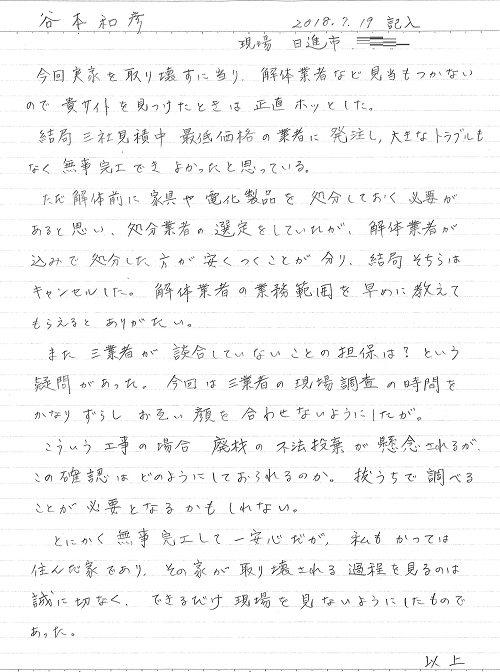 谷本和彦 2018.7.19 記入
現場 日進市
今回実家を取り壊すに当り、解体業者など見当もつかない
ので貴サイトを見つけたときは正直ホッとした。
結局三社見積中 最低価格の業者に発注し、大きなトラブルも
なく無事完工でき よかったと思っている。
ただ解体前に家具や電化製品を処分しておく必要が
あると思い、処分業者の選定をしていたが、解体業者が
込みで処分した方が安くつくことが分り、結局そちらは
キャンセルした。解体業者の業務範囲を早めに教えて
もらえるとありがたい。
また三業者が談合していないことの担保は?という
疑問があった。今回は三業者の現場調査の時間を
かなりずらし お互い顔を合わせないようにしたが。
こういう工事の場合 廃材の不法投棄が懸念されるが、
この確認はどのようにしておられるのか。抜うちで調べる
ことが必要となるかもしれない。
とにかく無事完工して一安心だが、私もかつては
住んだ家であり、その家が取り壊される過程を見るのは
誠に切なく、できるだけ現場を見ないようにしたもので
あった。
以上